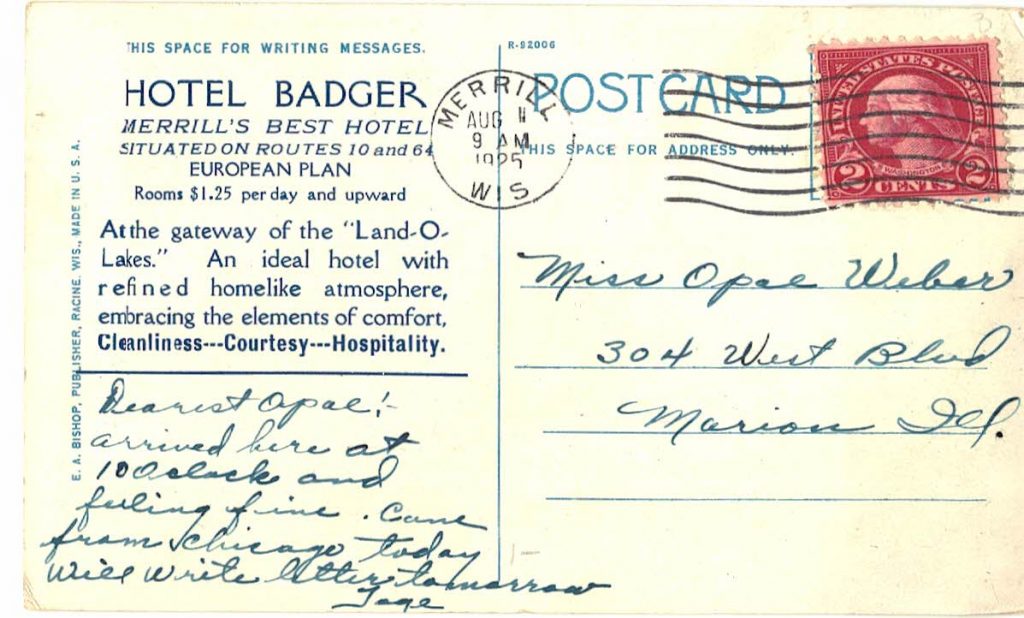 THIS SPACE FOR WRITING MESSAGES.
HOTEL BADGER
MERRILL'S BEST HOTEL
SITUATED ON ROUTES 10 and 64
EUROPEAN PLAN
Rooms $1.25 per day and upward
At the gateway of the "Land-O-
Lakes." An ideal hotel with
refined homelike atmosphere,
embracing the elements of comfort,
Cleanliness---Courtesy---Hospitality.
E. A. BISHOP, PUBLISHER, RACINE, WIS., MADE IN U. S. A.
Dearest Opal!-
arrived here at
10 Oclock and
feeling fine. Came
from Chicago today
Will write letter tomorrow
R-92006
POST CARD
THIS SPACE FOR ADDRESS ONLY.
MERRILL
AUG 11
9 AM
1925
WIS
UNITED STATES POSTAGE
WASHINGTON
2 CENTS 2
Miss Opal Weber
304 West Blvd
Marion Ill.